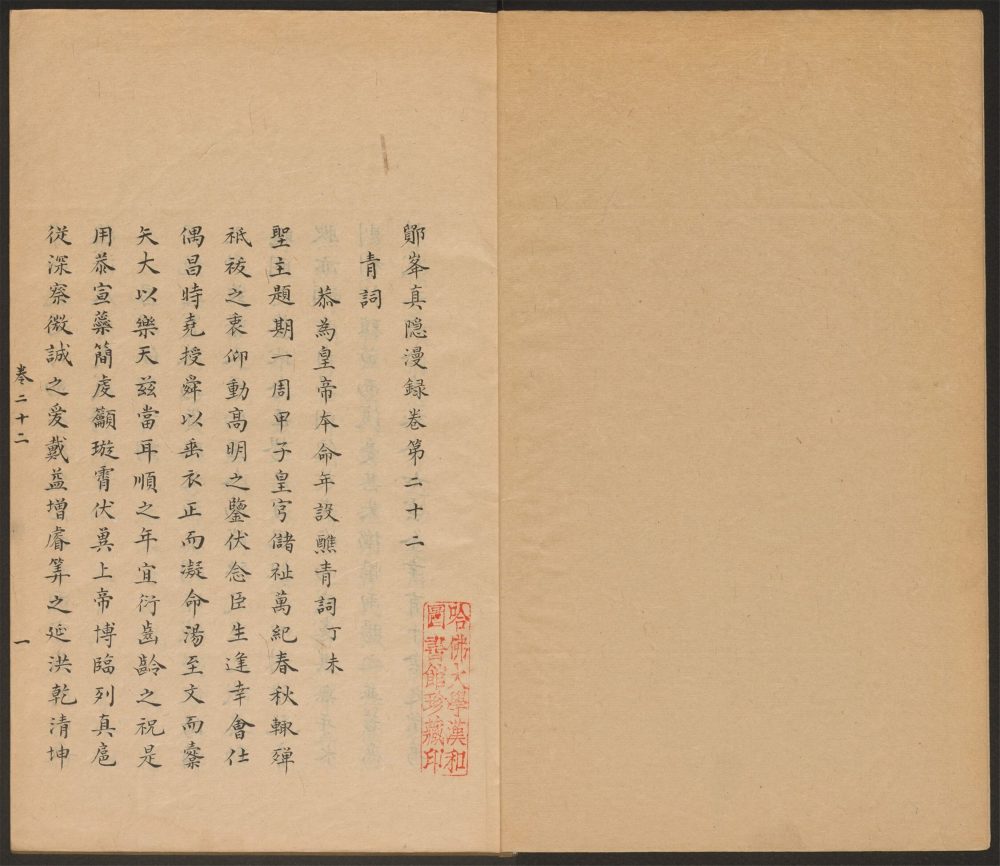 鄮峯真隱漫録卷第二十二
青詞
恭為皇帝本命年設醮青詞丁未
聖主題期一周甲子皇穹儲祉萬紀春秋輙殫
祗祓之衷仰動髙明之鑒伏念臣生逢幸會仕
偶昌時堯授舜以垂衣正而凝命湯至文而櫜
矢大以樂天兹當耳順之年宜衍齒齡之祝是
用恭宣蘂簡虔籲璇霄伏冀上帝博臨列真扈
從深察微誠之爱戴益增睿筭之延洪乾清坤
卷二十二
一
哈佛大學漢和
圖書館珍藏印